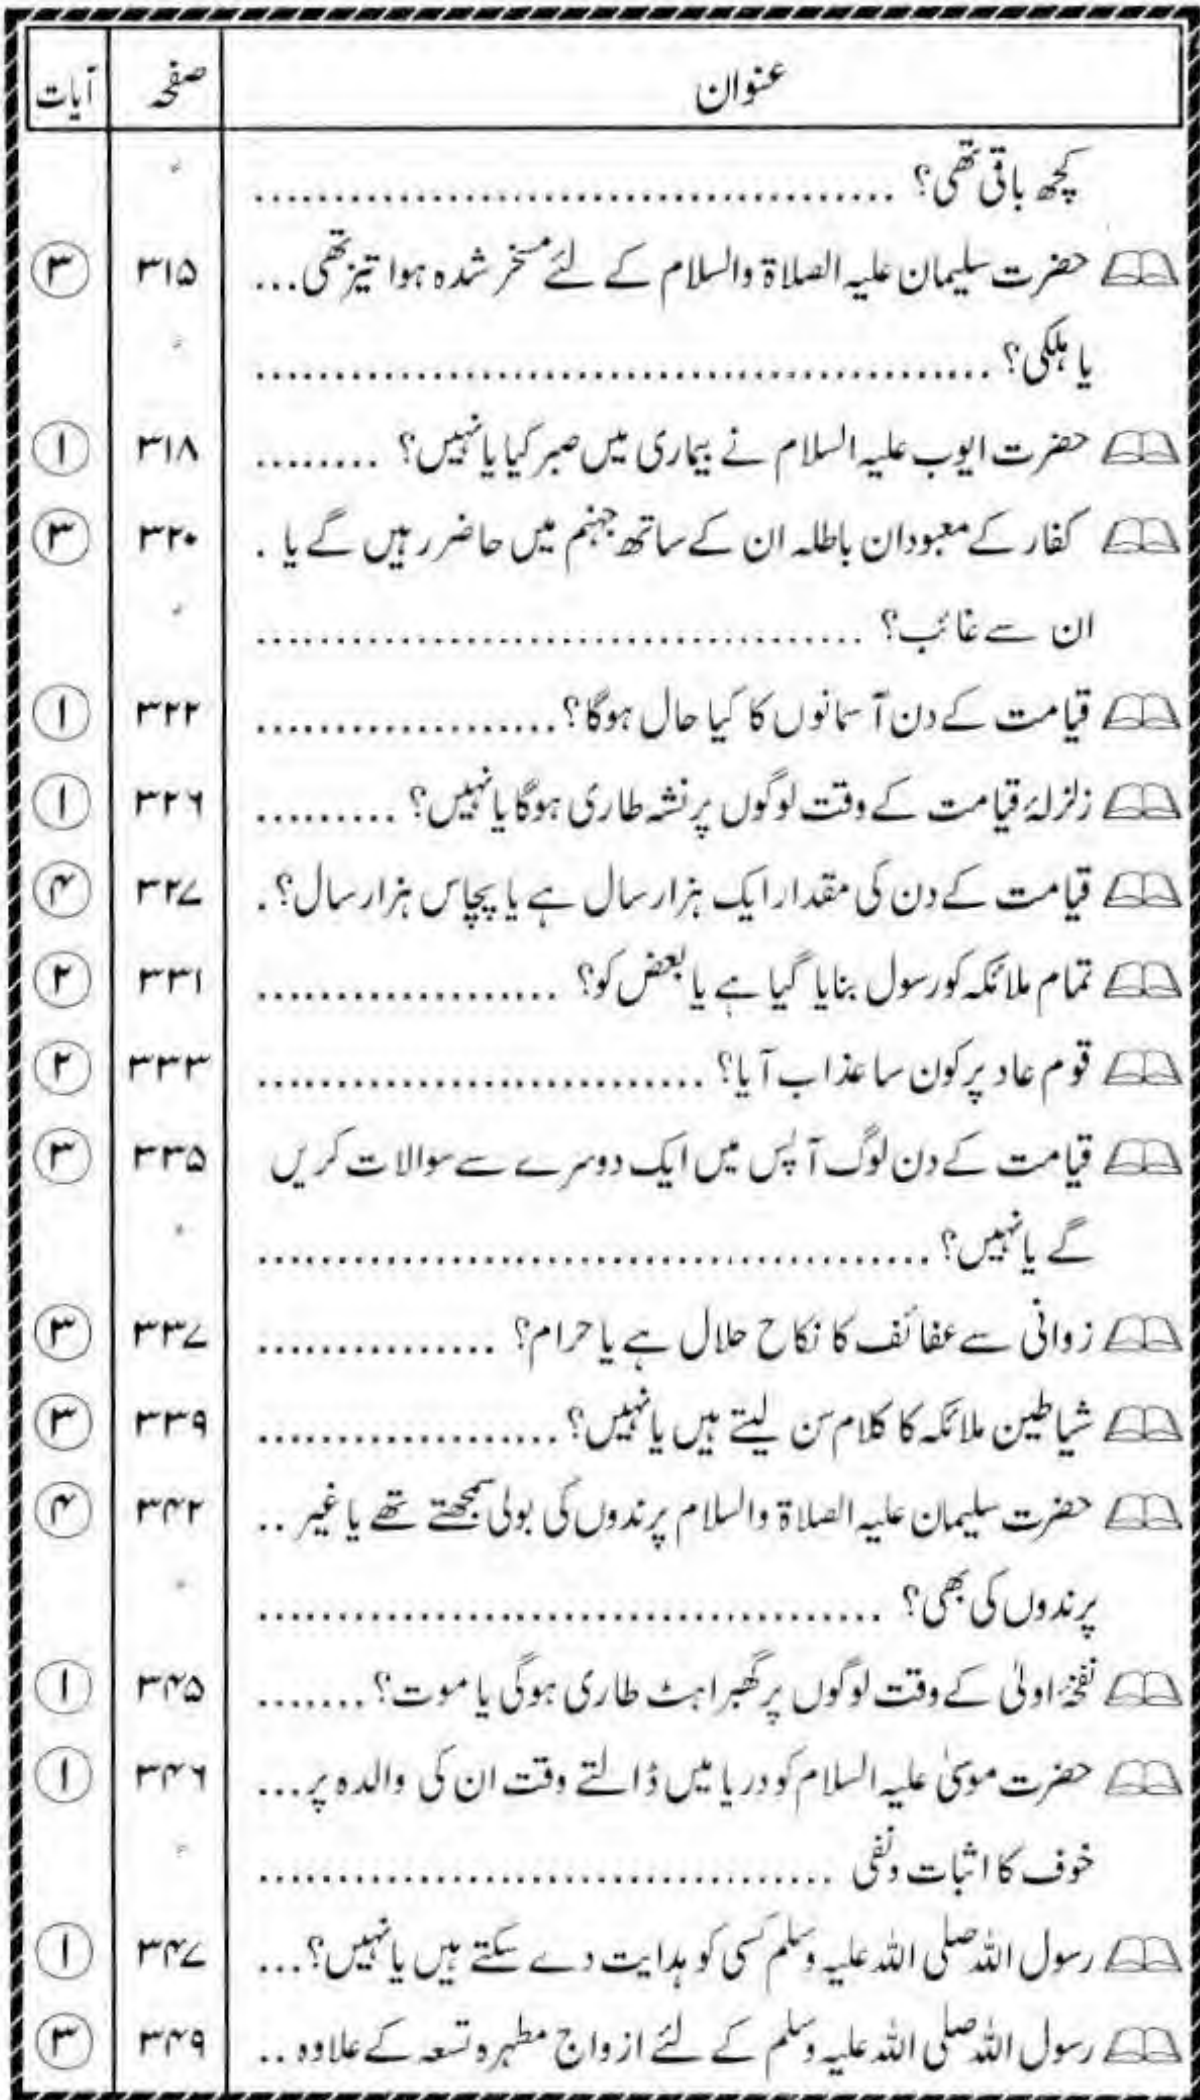 عنوان صفحہ آیات
کچھ باقی تھی؟ ........................................
حضرت سلیمان علیہ الصلاۃ والسلام کے لئے مسخر شدہ ہوا تیز تھی... ۳۱۵ ۳
یا ہلکی؟ ...............................................
حضرت ایوب علیہ السلام نے بیماری میں صبر کیا یا نہیں؟ ........ ۳۱۸ ۱
کفار کے معبودان باطلہ ان کے ساتھ جہنم میں حاضر رہیں گے یا . ۳۲۰ ۳
ان سے غائب؟ .......................................
قیامت کے دن آسمانوں کا کیا حال ہوگا؟ ................... ۳۲۲ ۱
زلزلۂ قیامت کے وقت لوگوں پر نشہ طاری ہوگا یا نہیں؟ ......... ۳۲۶ ۱
قیامت کے دن کی مقدار ایک ہزار سال ہے یا پچاس ہزار سال؟ . ۳۲۷ ۴
تمام ملائکہ کو رسول بنایا گیا ہے یا بعض کو؟ ................... ۳۳۱ ۲
قوم عاد پر کون سا عذاب آیا؟ ............................. ۳۳۳ ۲
قیامت کے دن لوگ آپس میں ایک دوسرے سے سوالات کریں ۳۳۵ ۳
گے یا نہیں؟ ...........................................
زوانی سے عفائف کا نکاح حلال ہے یا حرام؟ ............... ۳۳۷ ۳
شیاطین ملائکہ کا کلام سن لیتے ہیں یا نہیں؟ ................... ۳۳۹ ۳
حضرت سلیمان علیہ الصلاۃ والسلام پرندوں کی بولی سمجھتے تھے یا غیر .. ۳۴۲ ۴
پرندوں کی بھی؟ ........................................
نفخۂ اولیٰ کے وقت لوگوں پر گھبراہٹ طاری ہوگی یا موت؟ ....... ۳۴۵ ۱
حضرت موسیٰ علیہ السلام کو دریا میں ڈالتے وقت ان کی والدہ پر... ۳۴۶ ۱
خوف کا اثبات ونفی .....................................
رسول اللہ صلی اللہ علیہ وسلم کسی کو ہدایت دے سکتے ہیں یا نہیں؟... ۳۴۷ ۱
رسول اللہ صلی اللہ علیہ وسلم کے لئے ازواج مطہرہ تسعہ کے علاوہ .. ۳۴۹ ۳